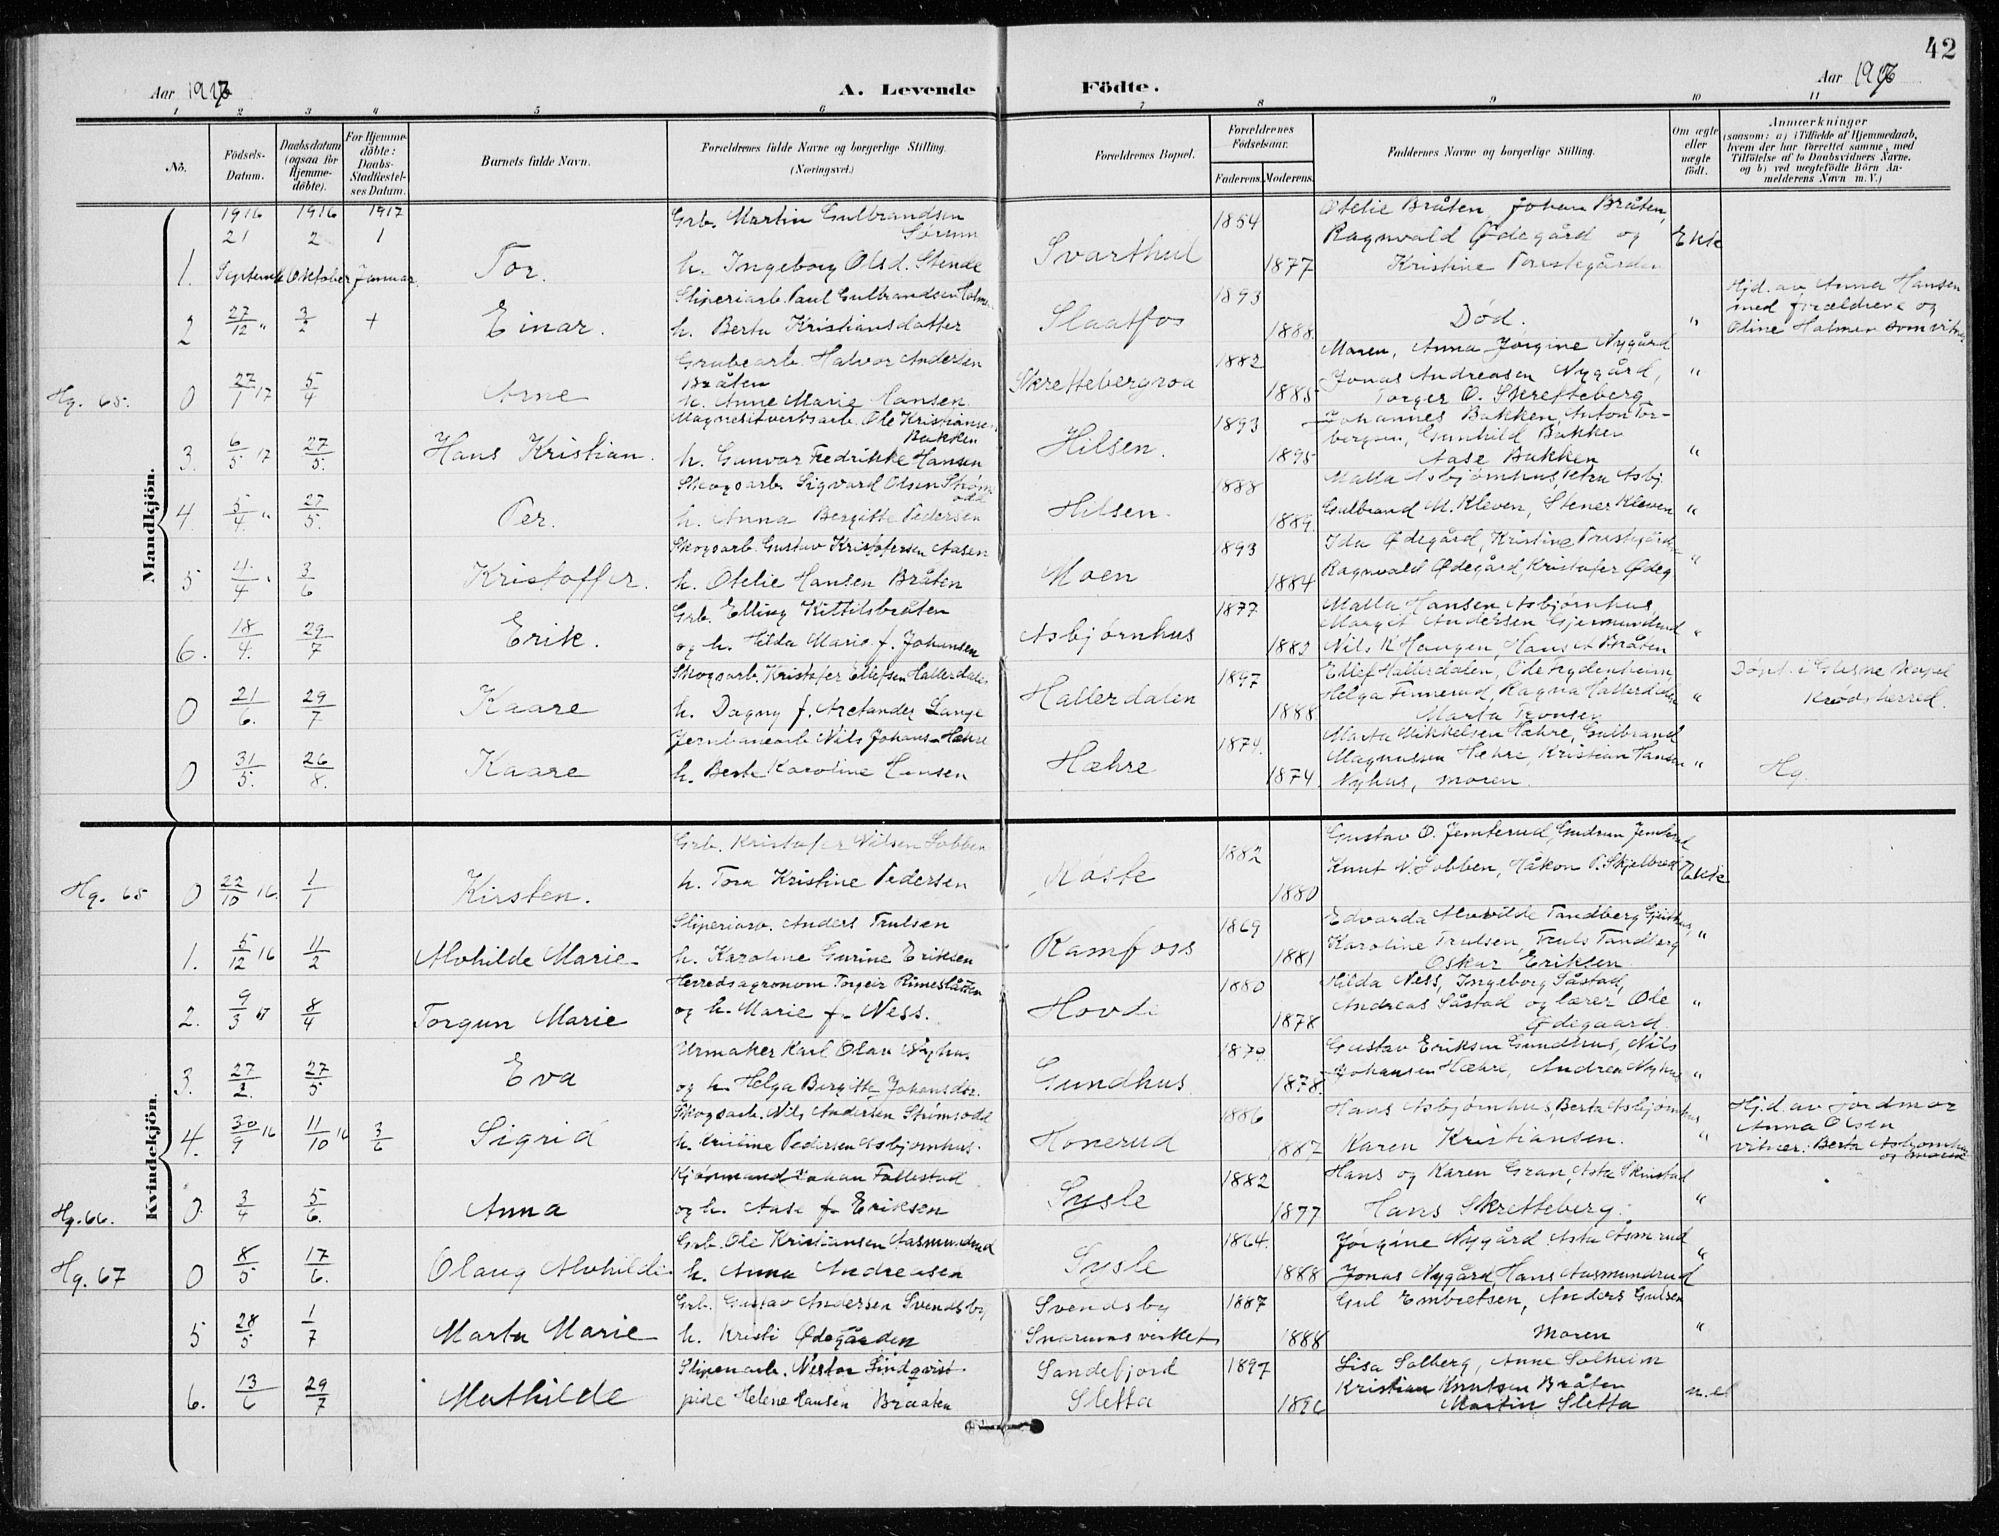 42
Aar 1917
A. Levende
Födte.
Aar 1917
1 2 3 4 5 6 7 8 9 10 11
No.
Födsels-
Datum.
Daabsdatum
(ogsaa for
Hjemme-
döbte).
For Hjemme-
döbte:
Daabs-
Stadfæstel-
ses Datum.
Barnets fulde Navn.
Forældrenes fulde Navne og borgerlige Stilling.
(Næringsvei.)
Forældrenes Bopæl.
Forældrenes
Födselsaar.
Faderens.
Moderens.
Faddernes Navne og borgerlige Stilling.
Om ægte
eller
uægte
födt.
Anmærkninger
(saasom: a) i Tilfælde af Hjemmedaab,
hvem der har forrettet samme, med
Tilföielse af to Daabsvidners Navne.
og b) ved uægtefödte Börn An-
melderens Navn m. V.)
Mandkjön.
1916 1916 1917
21 2 1
1. September Oktober Januar
Tor.
Grb. Martin Gulbrandsen
h. Ingeborg Olsd. Stende
Svarthul
1854
1877
Otelie Bråten, Johan Bråten,
Ragnvald Ødegård og
Kristine
Ekte
2 27/12 " 3/2 +
Einar.
Sliperiarb. Paul Gulbrandsen Holmen
h. Berta Kristiansdatter
Slaatfos
1893
1888.
Død.
"
Hjd. av Anna Hansen
med forældrene og
Oline Holmen som vitner
Hg. 65. 0 27/1 17 5/4
Arne
Grubearb. Halvor Andersen
Bråten
h. Anne Marie Hansen.
Skrettebergroa
1882
1885
Maren, Anna Jørgine Nygård
Jonas Andreasen Nygård,
Torger O. Skretteberg
"
3. 6/5 17 27/5.
Hans Kristian.
Magnesitverksarb. Ole Kristiansen
Bakken
h. Gunvar Fredrikke Hansen
Hilsen.
1893
1895
Johannes Bakken, Anton Tor-
bergsen, Gunhild Bakken
Aase Bakken
"
4. 5/4. " 27/5.
Per.
Skogsarb. Sigvard Olsen
h. Anna Bergitte Pedersen
Hilsen.
1888
1889.
Malla Asbjørnhus, Petra Asbj.
Gulbrand M. Kleven, Stener Kleven
"
5 4/4 " 3/6
Kristoffer.
Skogsarb. Gustav Kristofersen Aasen
h. Otelie Hansen Bråten
Moen
1893
1884
Ida Ødegård, Kristine
Ragnvald Ødegård, Kristofer Ødeg.
"
6. 18/4. 29/7
Erik.
Grb. Elling Kittilsbråten
og h. Hilda Marie f. Johansen
Asbjørnhus
1877
1882
Malla Hansen Asbjørnhus,
Margit Andersen Gjermundrud
Nils K Haugen, Hans A Bråten
"
0 21/6. 29/7
Kaare
Skogsarb. Kristofer Ellefsen Hallerdalen
h. Dagny f. Arctander Lange
Hallerdalen
1897
1888
Ellef Hallerdalen, Ole Lydenheim,
Helga Finnerud, Ragna Hallerdalen
Marta Tronsen
"
Døpt i Glesne kapel
Krødsherred.
0 31/5. 26/8.
Kaare
Jernbanearb. Nils Johansen Hæhre
h. Berte Karoline Hansen
Hæhre
1874.
1874.
Marta Mikkelsen Hæhre, Gulbrand
Magnussen Hæhre, Kristian Hansen
Nyhus, moren.
"
Hg.
Kvindekjön.
Hg. 65 0 22/10 16. 1/1
Kirsten.
Grb. Kristofer Nilsen Sobben
h. Tora Kristine Pedersen
Røste
1882
1880
Gustav O. Jemterud, Gudrun Jemterud
Knut N. Sobben, Håkon P. Skjelbred
Ekte
1. 5/12 16 11/2
Alvhilde Marie
Sliperiarb. Anders Trulsen
h. Karoline Gurine Eriksen
Ramfoss
1869
1881
Edvarda Alvilde Tandberg
Karoline Trulsen, Truls Tandberg
Oskar Eriksen.
"
2. 9/3 17 8/4
Torgun Marie
Herredsagronom Torgeir Rimeslåtten
og h. Marie f. Ness.
Hovde
1880
1878
Hilda Ness, Ingeborg Såstad,
Andreas Såstad og lærer Ole
Ødegaard.
"
3. 27/2. 27/5
Eva
Urmaker Karl Olav Nyhus
og h. Helga Bergitte Johansdtr.
Gundhus
1879.
1878.
Gustav Eriksen Gundhus, Nils
Johansen Hæhre, Andrea Nyhus
"
4. 30/9 16 11/10 16 3/6
Sigrid
Skogsarb. Nils Andersen Strimsodd
h. Kristine Pedersen Asbjørnhus.
Honerud
1886
1887
Hans Asbjørnhus, Berta Asbjørnhus,
Karen Kristiansen.
"
Hjd. av jordmor
Anna Olsen
vitner: Berta Asbjørnhus
og moren
Hg. 66. 0 3/4 5/6.
Anna
Kjørmand Johan Follestad
og h. Aase f. Eriksen
Sysle
1882
1877
Hans og Karen Gran, Asta Skinstad
Hans Skretteberg.
"
Hg. 67 0 8/5 17/6.
Olaug Alvhilde
Grb. Ole Kristiansen Aasmundrud
h. Anna Andreasen
Sysle
1864.
1888
Jørgine Nygård, Asta Asmrud
Jonas Nygård, Hans Aasmundrud
"
5 28/5 1/7
Marta Marie
Grb. Gustav Andersen Svendsby,
h. Kristi Ødegården
Svendsby
Snarumsverket
1887
1888
Gul Embretsen, Anders Gulsen
moren
"
6. 13/6 29/7
Mathilde
Sliperiarb. Nestor Lindqvist.
pike Helene Hansen Braaten
Sandefjord
Sletta
1897
1896
Lisa Solberg, Anne Solheim
Kristian Knutsen Bråten
Martin Sletta
u.e.